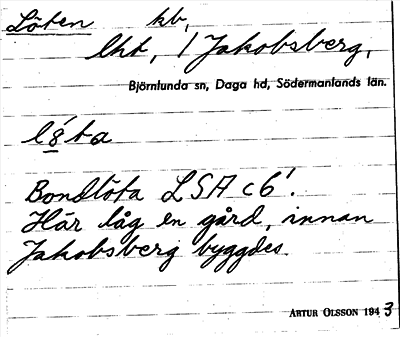 Löten kb,
lht, / Jakobsberg,
Björnlunda sn, Daga hd, Södermanlands län.
lö̀ta
Bondlöta LSA c 6'.
Här låg en gård, innan
Jakobsberg byggdes.
ARTUR OLSSON 1943